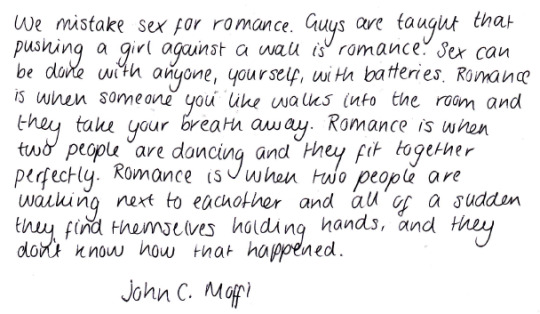 We mistake sex for romance. Guys are taught that
pushing a girl against a wall is romance. Sex can
be done with anyone, yourself, with batteries. Romance
is when someone you like walks into the room and
they take your breath away. Romance is when
two people are dancing and they fit together
perfectly. Romance is when two people are
walking next to eachother and all of a sudden
they find themselves holding hands, and they
don't know how that happened.
John C. Moffi